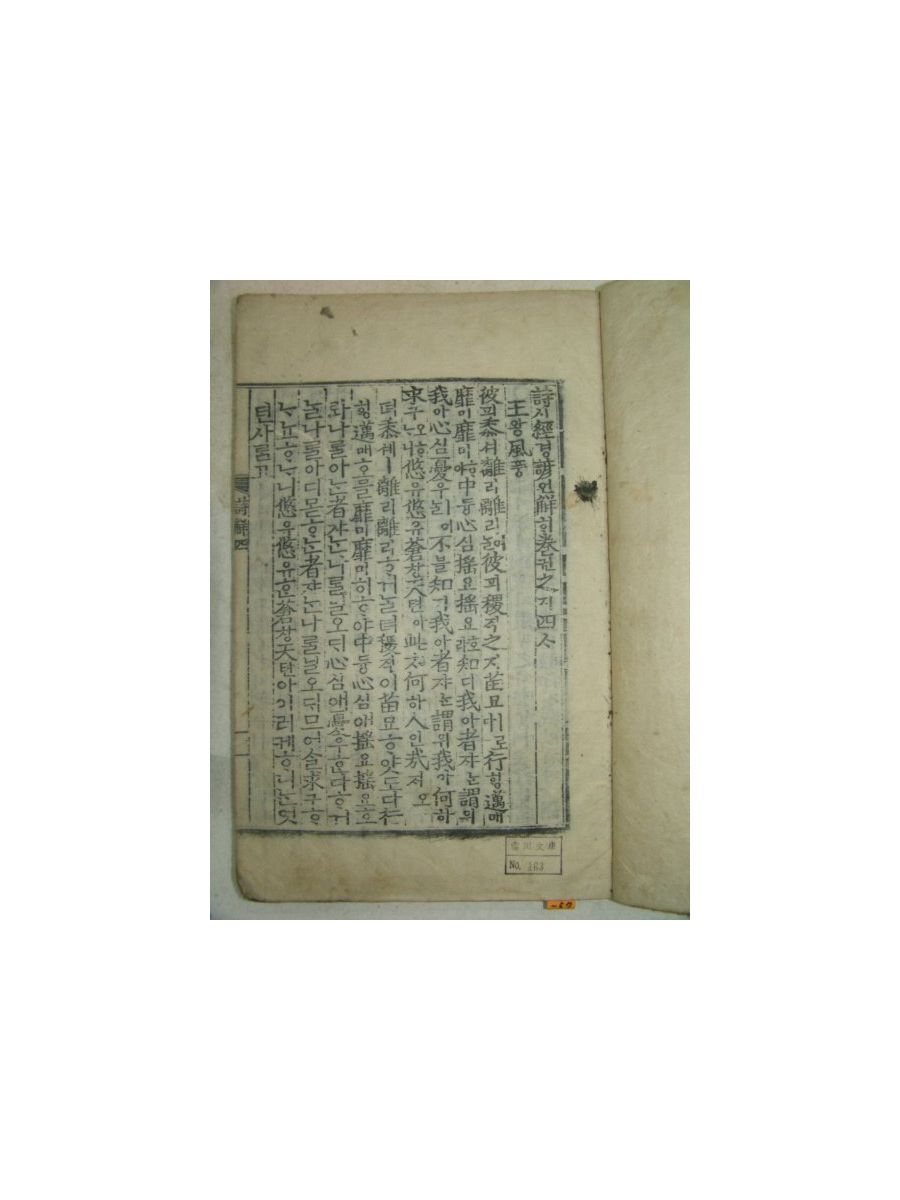 詩시經경諺언解ᄒᆡ卷권之지四ᄉ
王왕風풍
彼피黍셔離리離리ᄂᆞᆯ이彼피稷직之지苗묘ㅣ로다行ᄒᆡᆼ邁매
靡미靡미ᄒᆞ야中듕心심搖요搖요호라知디我아者쟈ᄂᆞᆫ謂위
我아心심憂우ㅣ어ᄂᆞᆯ不불知디我아者쟈ᄂᆞᆫ謂위我아何하
求구오ᄒᆞᄂᆞ니悠유悠유蒼창天텬아此ᄎᆞ何하人인哉ᄌᆡ오
뎌黍셔ㅣ離리離리ᄒᆞ거ᄂᆞᆯ뎌稷직이苗묘ᄒᆞ얏도다行
ᄒᆡᆼ邁매호믈靡미靡미히ᄒᆞ야中듕心심애搖요搖요호
라나ᄅᆞᆯ아ᄂᆞᆫ者쟈ᄂᆞᆫ나ᄅᆞᆯ닐오ᄃᆡ心심애憂우ᄒᆞᆫ다ᄒᆞ거
ᄂᆞᆯ나ᄅᆞᆯ아디몯ᄒᆞᄂᆞᆫ者쟈ᄂᆞᆫ나ᄅᆞᆯ닐오ᄃᆡ므어슬求구ᄒᆞ
ᄂᆞ뇨ᄒᆞᄂᆞ니悠유悠유ᄒᆞᆫ蒼창天텬아이러케ᄒᆞ니ᄂᆞᆫ엇
던사ᄅᆞᆷ고
詩解四
No. 163